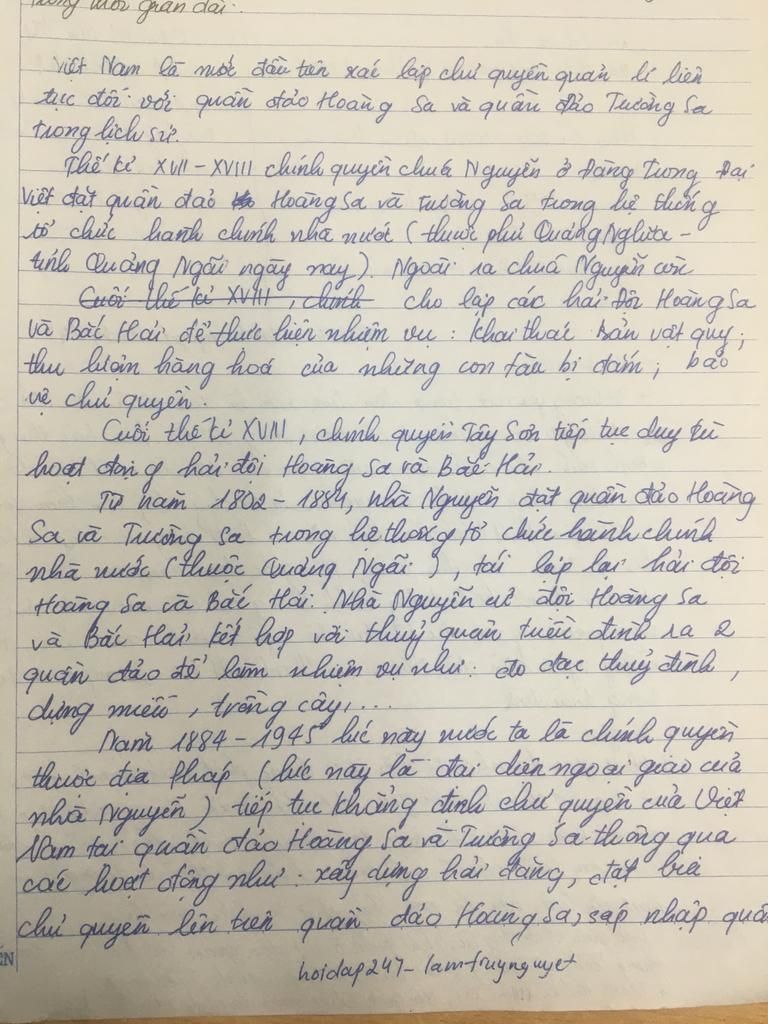 trong thời gian dài.
Việt Nam là nước đầu tiên xác lập chủ quyền quản lí liên
tục đối với quần đảo Hoàng Sa và quần đảo Trường Sa
trong lịch sử.
Thế kỉ XVII - XVIII chính quyền chúa Nguyễn ở Đàng Trong Đại
Việt đặt quần đảo Hoàng Sa và Trường Sa trong hệ thống
tổ chức hành chính nhà nước (thuộc phủ Quảng Nghĩa -
tỉnh Quảng Ngãi ngày nay). Ngoài ra chúa Nguyễn còn
Cuối thế kỉ XVIII, chính cho lập các hải đội Hoàng Sa
và Bắc Hải để thực hiện nhiệm vụ: khai thác sản vật quý;
thu lượm hàng hoá của những con tàu bị đắm; bảo
vệ chủ quyền.
Cuối thế kỉ XVIII, chính quyền Tây Sơn tiếp tục duy trì
hoạt động hải đội Hoàng Sa và Bắc Hải.
Từ năm 1802 - 1884, nhà Nguyễn đặt quần đảo Hoàng
Sa và Trường Sa trong hệ thống tổ chức hành chính
nhà nước (thuộc Quảng Ngãi), tái lập lại hải đội
Hoàng Sa và Bắc Hải. Nhà Nguyễn cử đội Hoàng Sa
và Bắc Hải kết hợp với thuỷ quân triều đình ra 2
quần đảo để làm nhiệm vụ như: đo đạc thuỷ đình,
dựng miếu, trồng cây,...
Năm 1884 - 1945 lúc này nước ta là chính quyền
thuộc địa Pháp (lúc này là đại diện ngoại giao của
nhà Nguyễn) tiếp tục khẳng định chủ quyền của Việt
Nam tại quần đảo Hoàng Sa và Trường Sa thông qua
các hoạt động như: xây dựng hải đăng, đặt bia
chủ quyền lên trên quần đảo Hoàng Sa, sáp nhập quần
hoidap247-lamtruynguyet